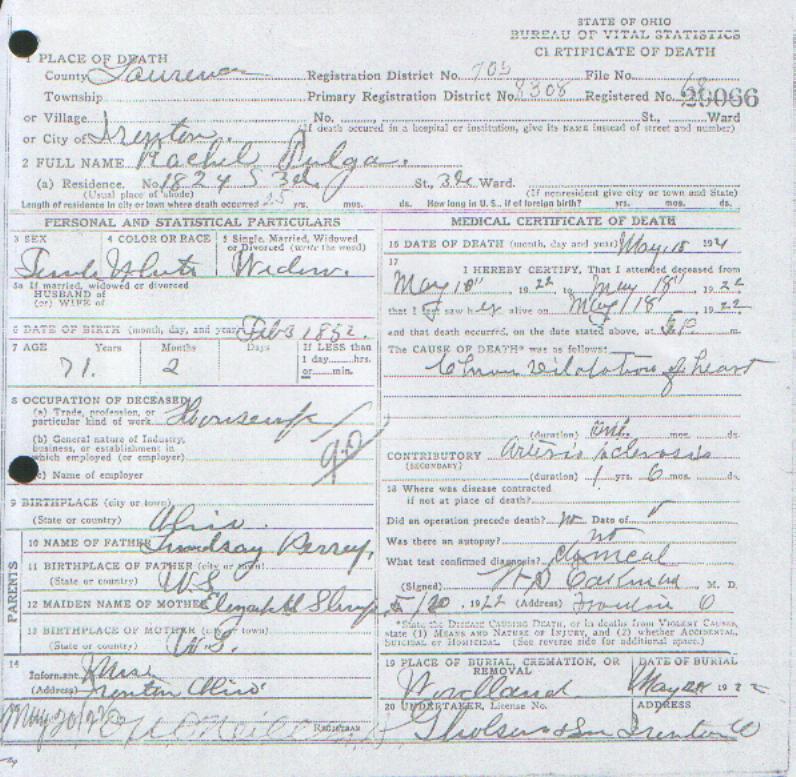 STATE OF OHIO
BUREAU OF VITAL STATISTICS
CERTIFICATE OF DEATH
1 PLACE OF DEATH
County Registration District No. 705 File No.
Township Primary Registration District No. 8308 Registered No. 26066
or Village No. , St., Ward
(If death occured in a hospital or institution, give its NAME instead of street and number)
or City of Irenton.
2 FULL NAME Rachel
(a) Residence. No. 1824 S 3d St., 3d Ward.
(Usual place of abode) (If nonresident give city or town and State)
Length of residence in city or town where death occurred yrs. mos. ds. How long in U. S., if of foreign birth? yrs. mos. ds.
PERSONAL AND STATISTICAL PARTICULARS
3 SEX 4 COLOR OR RACE 5 Single, Married, Widowed or Divorced (write the word)
Female White Widow.
5a If married, widowed or divorced
HUSBAND of
(or) WIFE of
6 DATE OF BIRTH (month, day, and year) Feb 3 1852.
7 AGE Years Months Days If LESS than
1 day hrs.
or min.
71. 2
8 OCCUPATION OF DECEASED
(a) Trade, profession, or
particular kind of work
(b) General nature of Industry,
business, or establishment in
which employed (or employer)
(c) Name of employer
9 BIRTHPLACE (city or town)
(State or country) Ohio.
PARENTS
10 NAME OF FATHER Lindsay
11 BIRTHPLACE OF FATHER (city or town)
(State or country) U.S.
12 MAIDEN NAME OF MOTHER
13 BIRTHPLACE OF MOTHER (city or town)
(State or country) U.S.
14
Informant
(Address) Irenton Ohio
May 20/22 REGISTRAR
MEDICAL CERTIFICATE OF DEATH
16 DATE OF DEATH (month, day and year) May 18 192
17
I HEREBY CERTIFY, That I attended deceased from
May 10", 1922 to May 18", 1922
that I last saw her alive on May 18, 1922
and that death occurred, on the date stated above, at P. m.
The CAUSE OF DEATH* was as follows:
Dilatation of heart
(duration) mos. ds.
CONTRIBUTORY Arterio sclerosis
(SECONDARY)
(duration) 1 yrs. 6 mos. ds.
18 Where was disease contracted
if not at place of death?
Did an operation precede death? no Date of
Was there an autopsy? no
What test confirmed diagnosis? clinical
(Signed) M. D.
5/20, 1922 (Address) O
*State the DISEASE CAUSING DEATH, or in deaths from VIOLENT CAUSES,
state (1) MEANS AND NATURE OF INJURY, and (2) whether ACCIDENTAL,
SUICIDAL or HOMICIDAL. (See reverse side for additional space.)
19 PLACE OF BURIAL, CREMATION, OR REMOVAL DATE OF BURIAL
Woodland May 20 1922
20 UNDERTAKER, License No. ADDRESS
Gholson & Son Irenton O